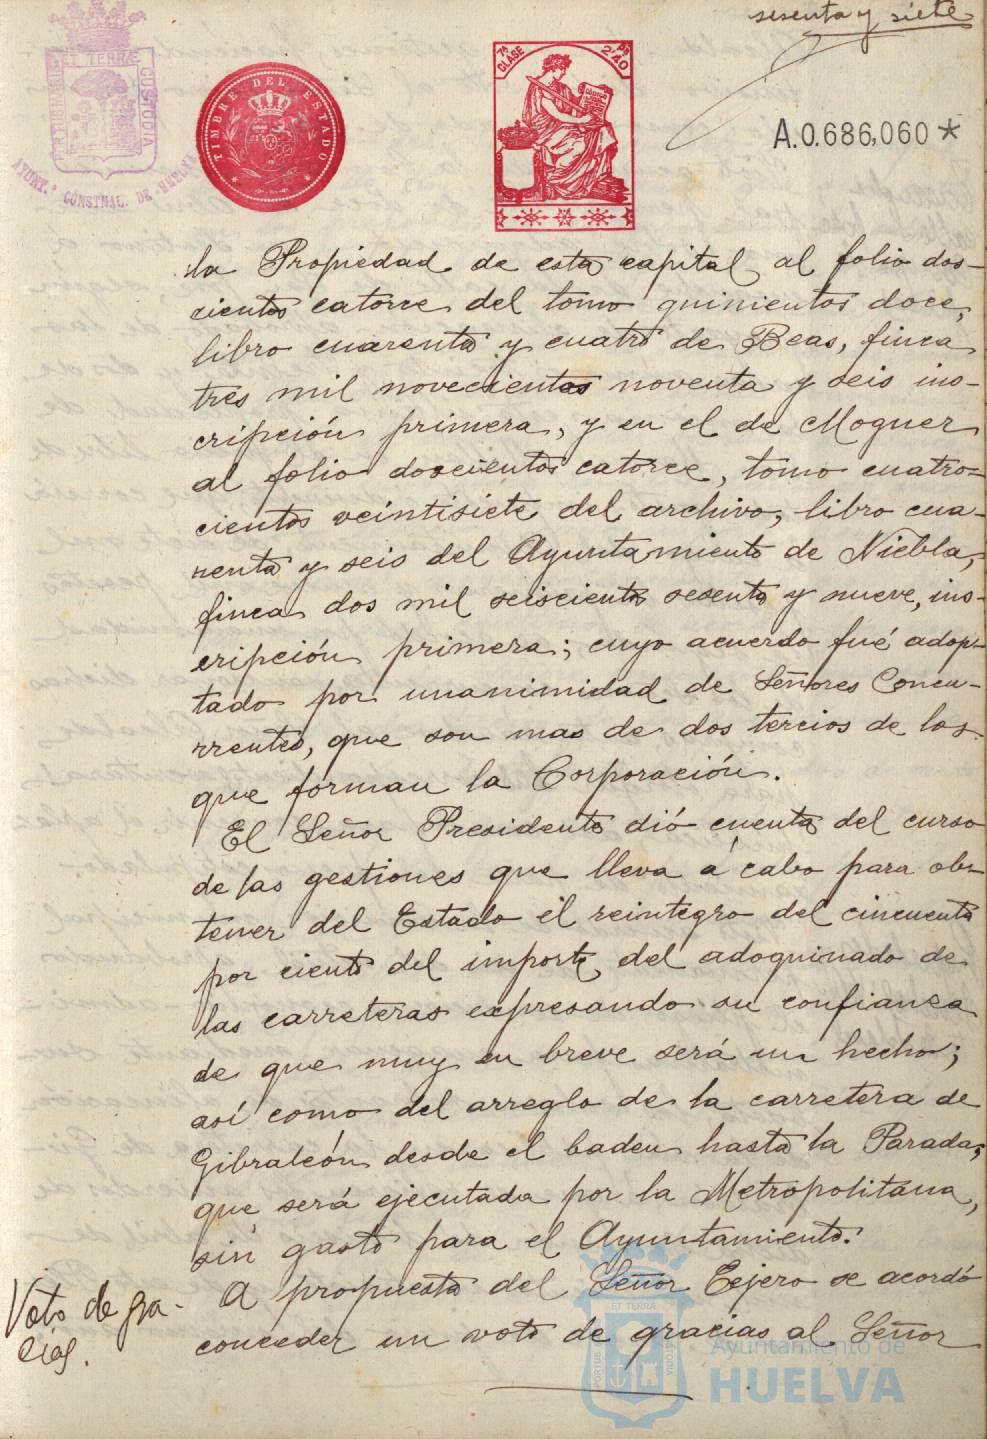 sesenta y siete
ET TERRÆ
CUSTODIA
AYUNT.º CONSTNAL. DE HUELVA
TIMBRE DEL ESTADO
7ª CLASE
2'40
A.0.686,060 *
la Propiedad de esta capital al folio dos-
cientos catorce del tomo quinientos doce,
libro cuarenta y cuatro de Beas, finca
tres mil novecientas noventa y seis ins-
cripción primera, y en el de Moguer
al folio doscientos catorce, tomo cuatro-
cientos veintisiete del archivo, libro cua-
renta y seis del Ayuntamiento de Niebla,
finca dos mil seiscientas sesenta y nueve, ins-
cripción primera; cuyo acuerdo fué adop-
tado por unanimidad de Señores Concu-
rrentes, que son mas de dos tercios de los
que forman la Corporación.
El Señor Presidente dió cuenta del curso
de las gestiones que lleva á cabo para ob-
tener del Estado el reintegro del cincuenta
por ciento del importe del adoquinado de
las carreteras expresando su confianza
de que muy en breve será un hecho;
así como del arreglo de la carretera de
Gibraleón desde el baden hasta la Parada,
que será ejecutada por la Metropolitana,
sin gasto para el Ayuntamiento.
Voto de gra-
cias.
A propuesta del Señor Tejero se acordó
conceder un voto de gracias al Señor
ET TERRA
CUSTODIA
Ayuntamiento de
HUELVA